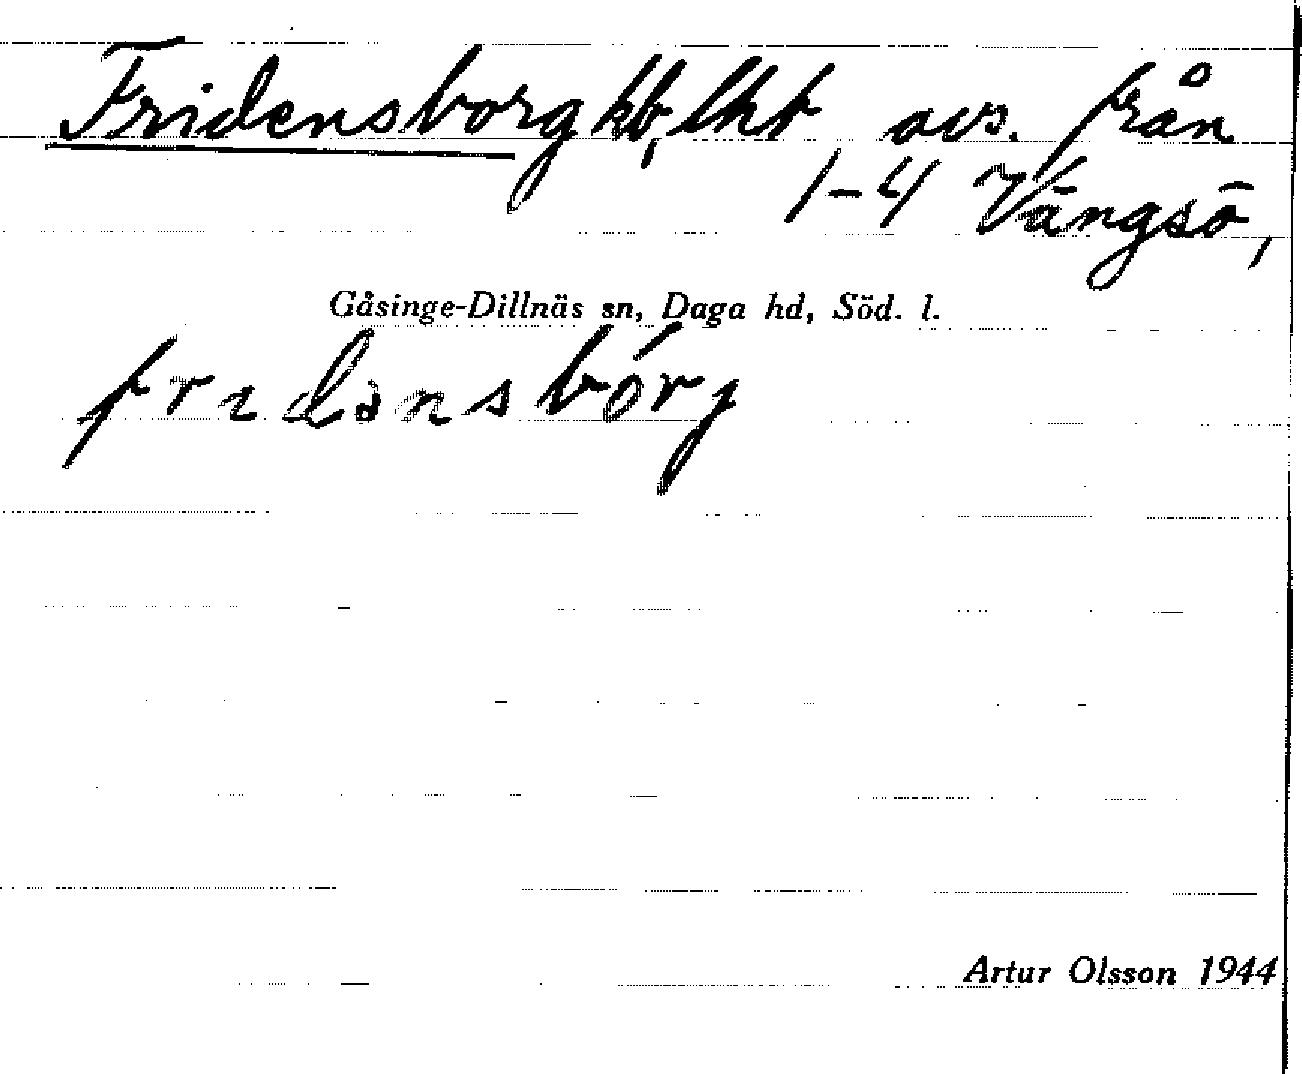 Fridensborg kb, lht avs. från
1-4 Vängsö,
Gåsinge-Dillnäs sn, Daga hd, Söd. l.
fridànsbórg
Artur Olsson 1944